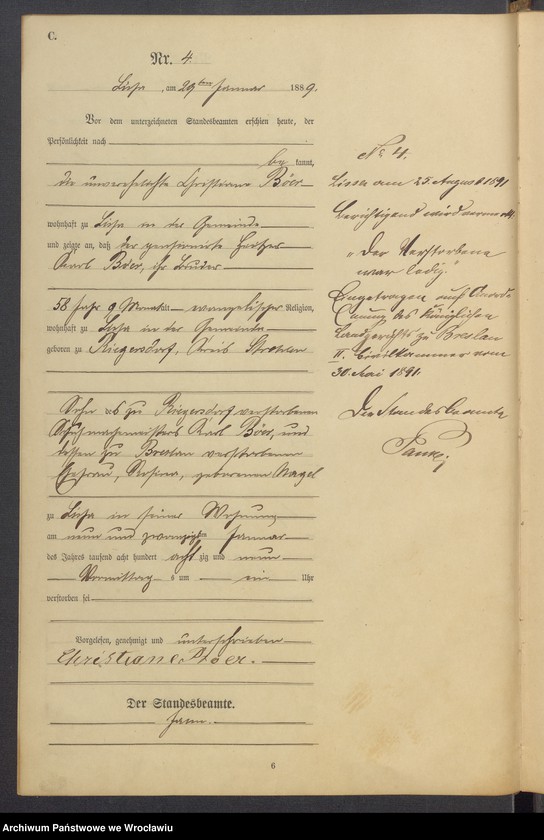 C.
Nr. 4
Lissa, am 29ten Januar 1889.
Vor dem unterzeichneten Standesbeamten erschien heute, der
Persönlichkeit nach
be kannt,
die unverehelichte Christiane Böer
wohnhaft zu Lissa in der Gemeinde
und zeigte an, daß der pensionirte
Karl Böer, ihr Bruder
58 Jahr 9 Monat alt, evangelischer Religion,
wohnhaft zu Lissa in der Gemeinde
geboren zu Riegersdorf, Kreis Strehlen
Sohn des zu Riegersdorf verstorbenen
Schuhmachermeisters Karl Böer, und
dessen zu Breslau verstorbenen
Ehefrau, Rosina, geborenen Nagel
zu Lissa in seiner Wohnung
am neun und zwanzigsten Januar
des Jahres tausend acht hundert acht zig und neun
Vormittag s um ein Uhr
verstorben sei
Vorgelesen, genehmigt und unterschrieben
Christiane Böer.
Der Standesbeamte.
6
No 4.
Lissa am 25 August 1891
Berichtigend wird vermerkt,
"Der Verstorbene
war ledig."
Eingetragen auf Anord-
nung des Königlichen
Landgerichts zu Breslau
II. Civilkammer vom
30 Mai 1891.
Der Standesbeamte
Archiwum Państwowe we Wrocławiu